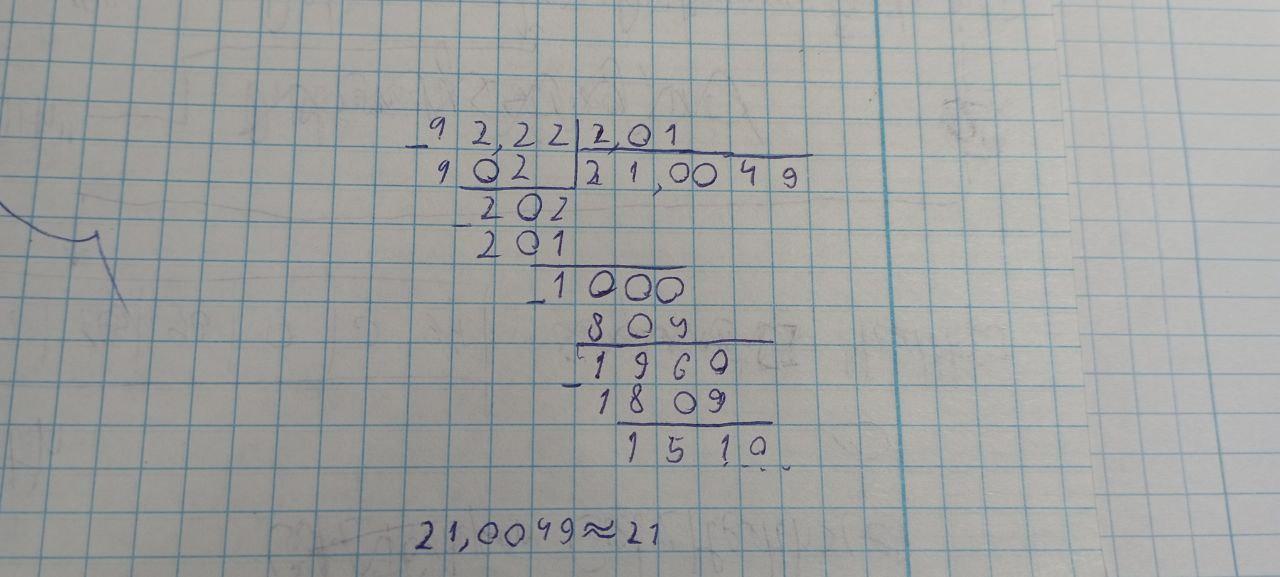 92,22 | 2,01
902 | 21,0049
202
201
1000
809
1960
1809
1510...
21,0049≈21